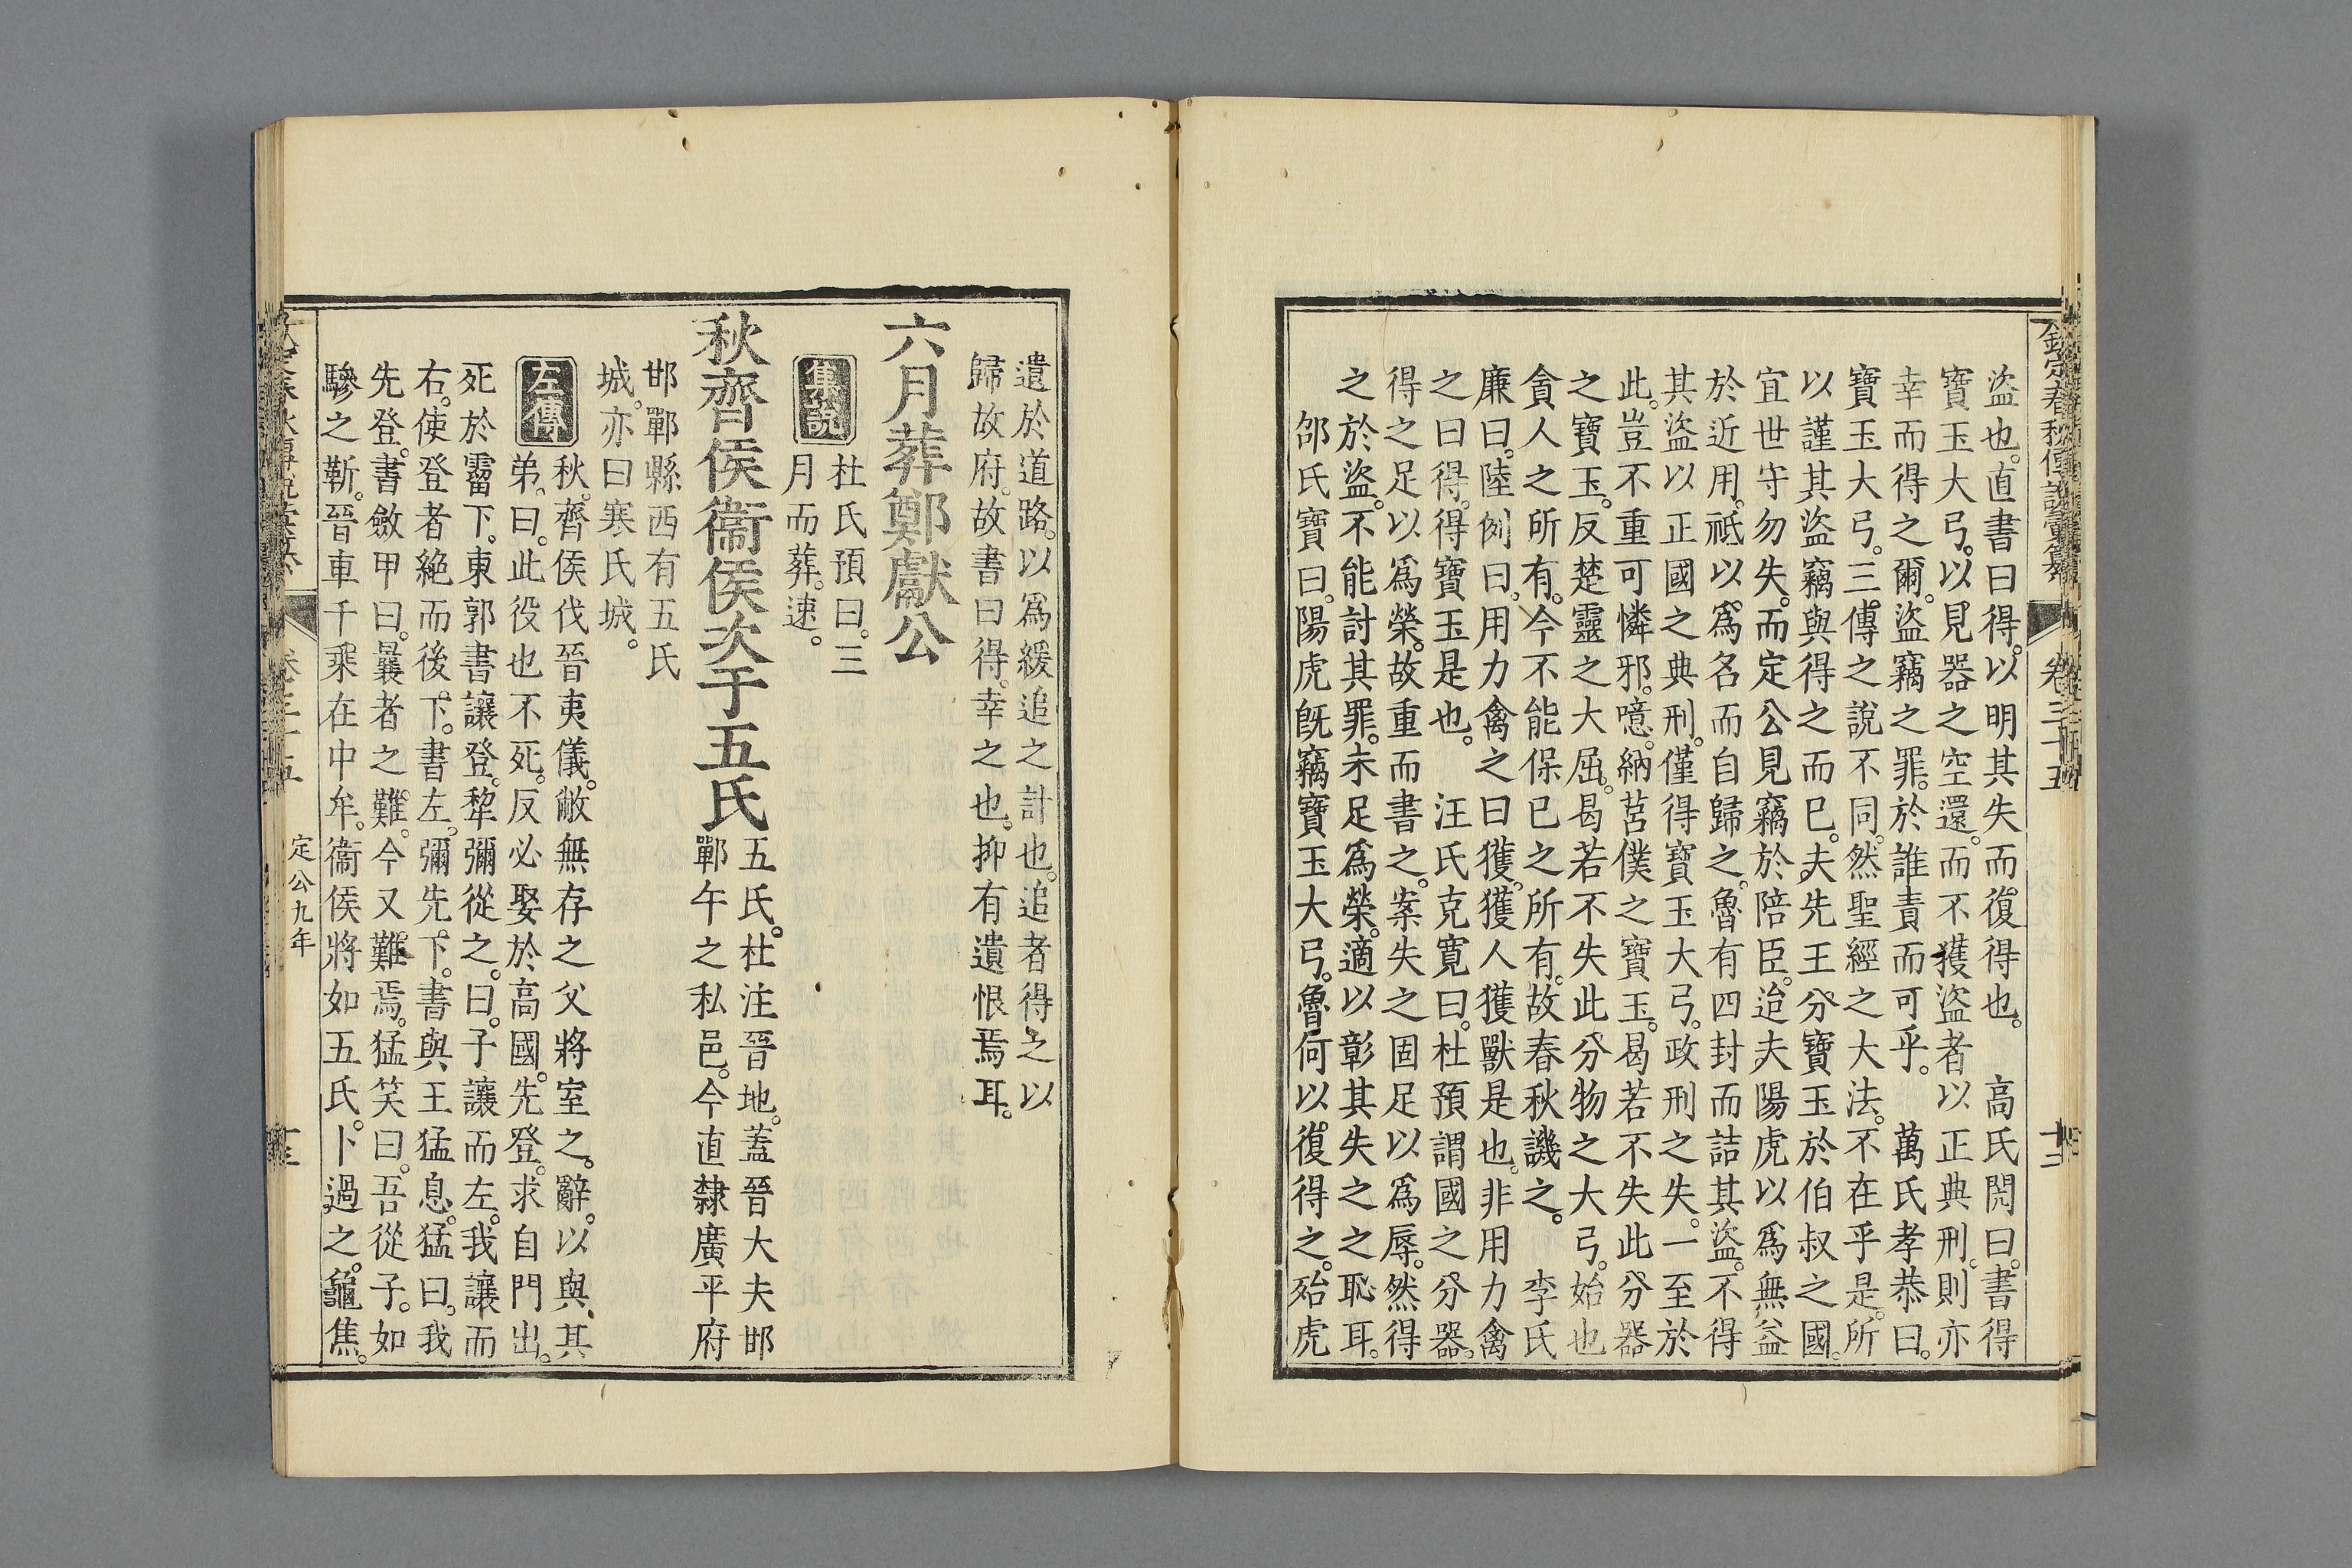 欽定春秋傳說彙纂 卷三十五 十三
盜也。直書曰得。以明其失而復得也。 高氏閌曰。書得
寶玉大弓。以見器之空還。而不獲盜者以正典刑。則亦
幸而得之爾。盜竊之罪。於誰責而可乎。 萬氏孝恭曰。
寶玉大弓。三傳之說不同。然聖經之大法。不在乎是。所
以謹其盜竊與得之而已。夫先王分寶玉於伯叔之國。
宜世守勿失。而定公見竊於陪臣。迨夫陽虎以爲無益
於近用。祗以爲名而自歸之。魯有四封而詰其盜。不得
其盜以正國之典刑。僅得寶玉大弓。政刑之失。一至於
此。豈不重可憐邪。噫。納莒僕之寶玉。曷若不失此分器
之寶玉。反楚靈之大屈。曷若不失此分物之大弓。始也
貪人之所有。今不能保已之所有。故春秋譏之。 李氏
廉曰。陸例曰。用力禽之曰獲。獲人獲獸是也。非用力禽
之曰得。得寶玉是也。 汪氏克寬曰。杜預謂國之分器。
得之足以爲榮。故重而書之。案失之固足以爲辱。然得
之於盜。不能討其罪。未足爲榮。適以彰其失之之恥耳。
邵氏寶曰。陽虎旣竊寶玉大弓。魯何以復得之。殆虎
遺於道路。以爲緩追之計也。追者得之以
歸故府。故書曰得。幸之也。抑有遺恨焉耳。
六月葬鄭獻公
集說 杜氏預曰。三
月而葬。速。
秋齊侯衞侯次于五氏 五氏。杜注晉地。蓋晉大夫邯
鄲午之私邑。今直隸廣平府
邯鄲縣西有五氏
城。亦曰寒氏城。
左傳 秋。齊侯伐晉夷儀。敝無存之父將室之。辭。以與其
弟。曰。此役也不死。反必娶於高國。先登。求自門出。
死於霤下。東郭書讓登。犂彌從之。曰。子讓而左。我讓而
右。使登者絕而後。下。書左。彌先下。書與王猛息。猛曰。我
先登。書斂甲曰。曩者之難。今又難焉。猛笑曰。吾從子。如
驂之靳。晉車千乘在中牟。衞侯將如五氏。卜過之。龜焦。
定公九年